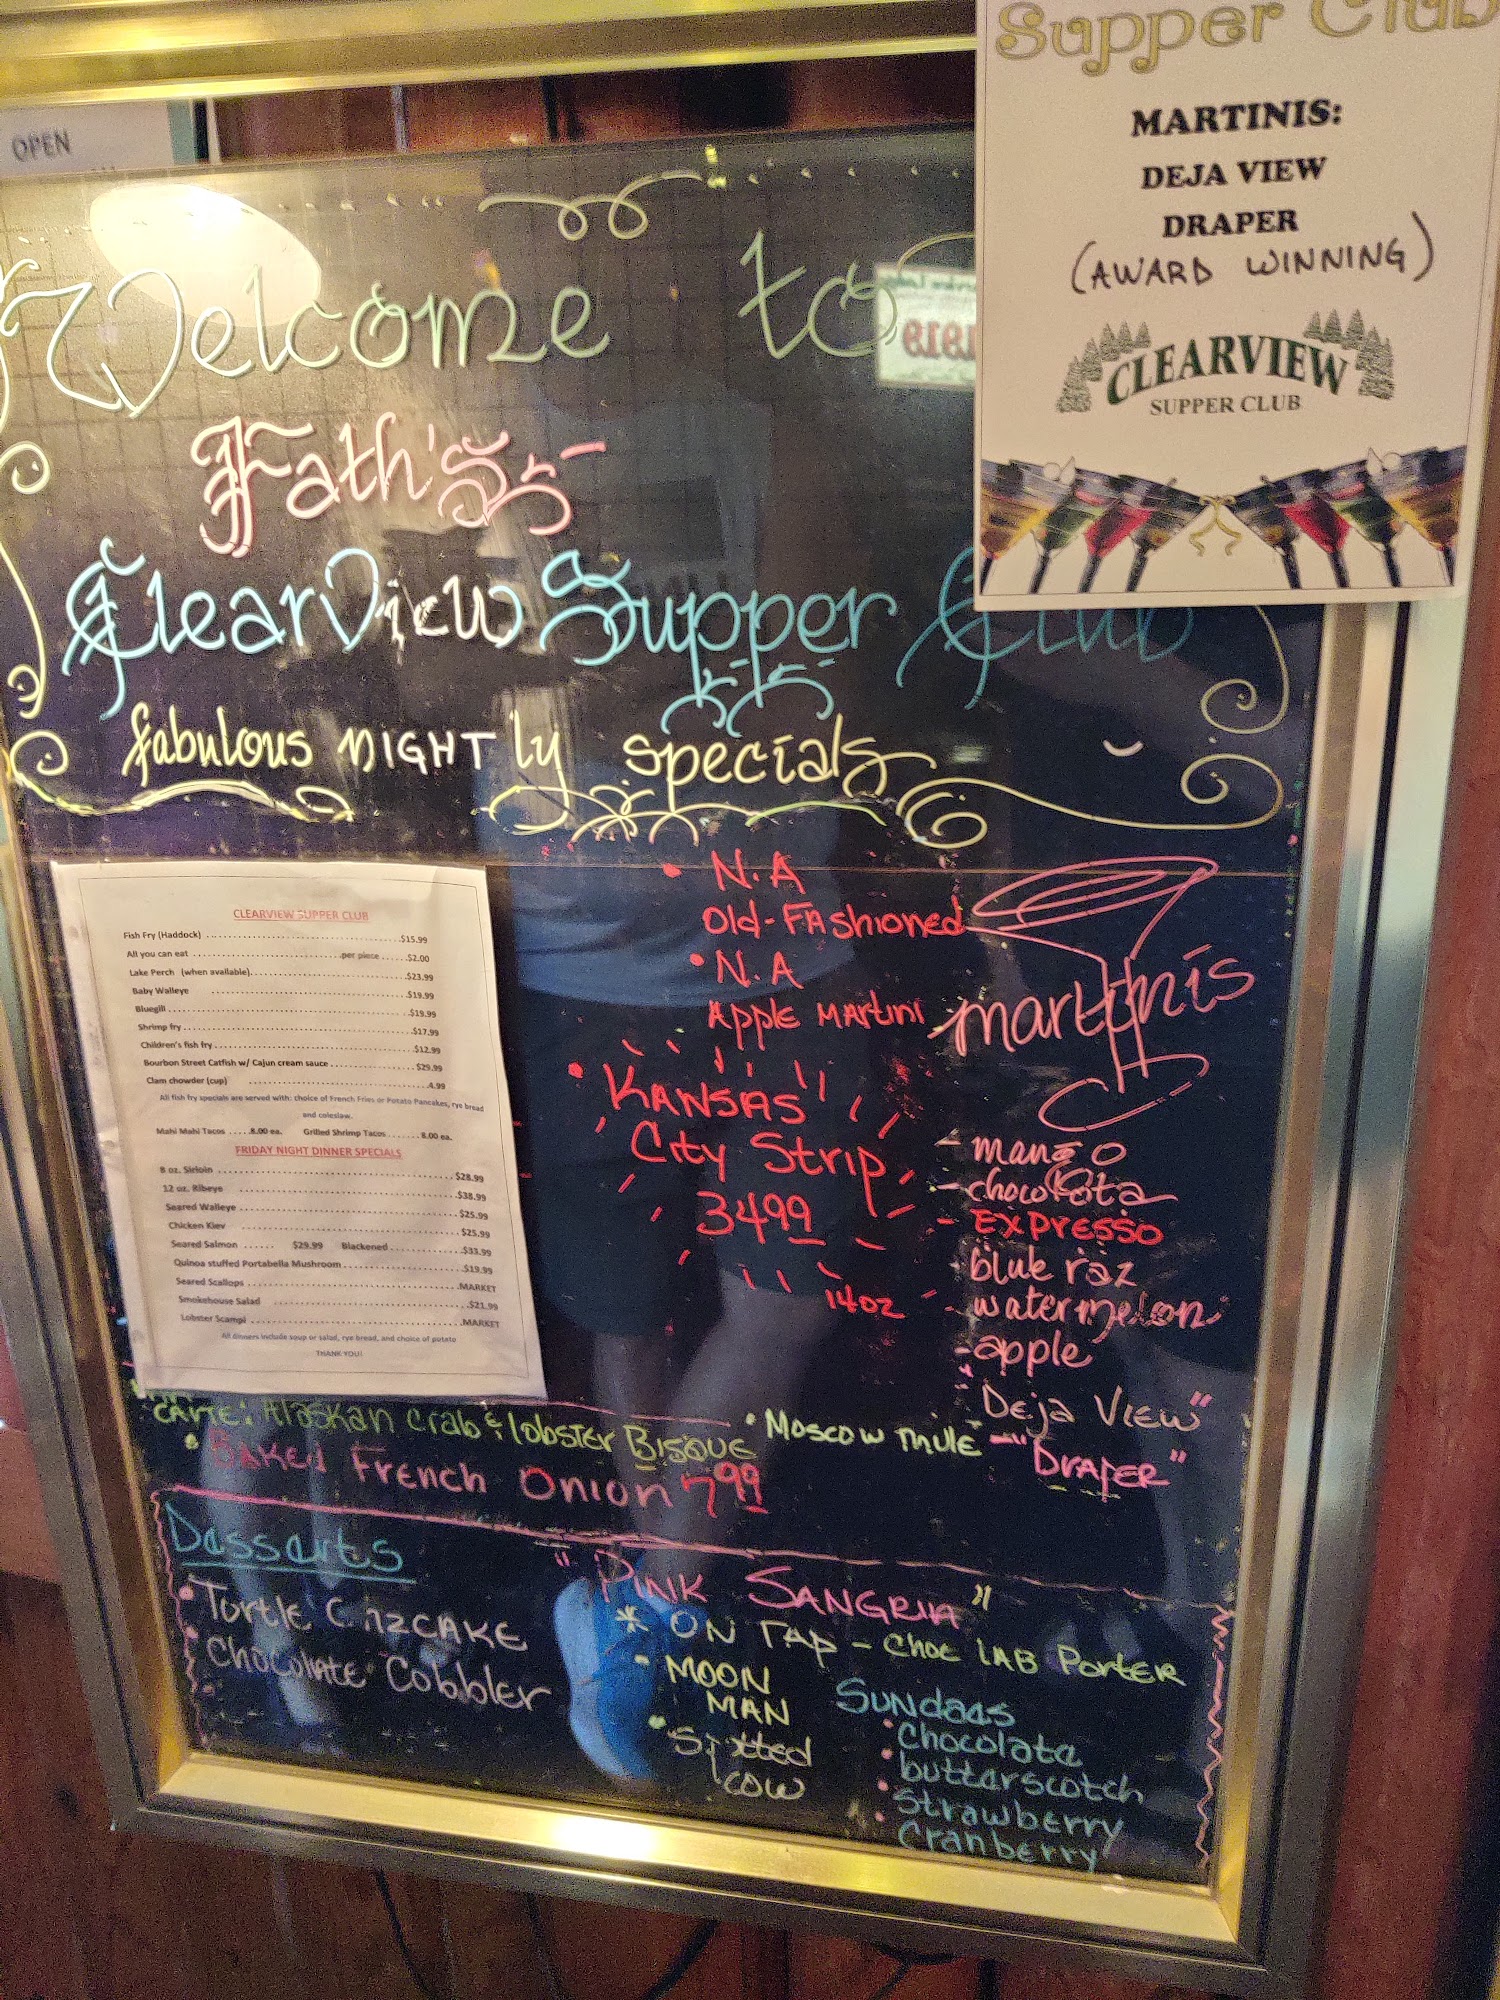 OPEN
Supper Club
MARTINIS:
DEJA VIEW
DRAPER
(AWARD WINNING)
CLEARVIEW
SUPPER CLUB
Welcome to
Fath's
Clearview Supper Club
fabulous NIGHTly specials
CLEARVIEW SUPPER CLUB
Fish Fry (Haddock) ........ $15.99
All you can eat ........ per piece ...... $2.00
Lake Perch (when available)........ $23.99
Baby Walleye ........ $19.99
Bluegill ........ $19.99
Shrimp fry ........ $17.99
Children's fish fry ........ $12.99
Bourbon Street Catfish w/ Cajun cream sauce ........ $29.99
Clam chowder (cup) ........ 4.99
All fish fry specials are served with: choice of French Fries or Potato Pancakes, rye bread
and coleslaw.
Mahi Mahi Tacos .....8.00 ea. Grilled Shrimp Tacos ........ 8.00 ea.
FRIDAY NIGHT DINNER SPECIALS
8 oz. Sirloin ........ $28.99
12 oz. Ribeye ........ $38.99
Seared Walleye ........ $25.99
Chicken Kiev ........ $25.99
Seared Salmon ...... $29.99 Blackened ........ $33.99
Quinoa stuffed Portabella Mushroom ........ $19.99
Seared Scallops ........ MARKET
Smokehouse Salad ........ $21.99
Lobster Scampi ........ MARKET
All dinners include soup or salad, rye bread, and choice of potato
THANK YOU!
• N.A
Old-Fashioned
• N.A
Apple Martini
• KANSAS
City Strip
3499
14oz
martinis
- mango
- chocolate
- EXPRESSO
- blue raz
- watermelon
- apple
"Deja View"
- "Draper"
• Moscow Mule
CARTE: Alaskan Crab & lobster Bisque
• Baked French Onion 7 99
Desserts
• Turtle Cheezcake
• Chocolate Cobbler
"PINK SANGRIA"
* ON TAP - Choc lAB Porter
- MOON
MAN
• Spotted
cow
Sundaes
• chocolate
• butterscotch
• strawberry
cranberry